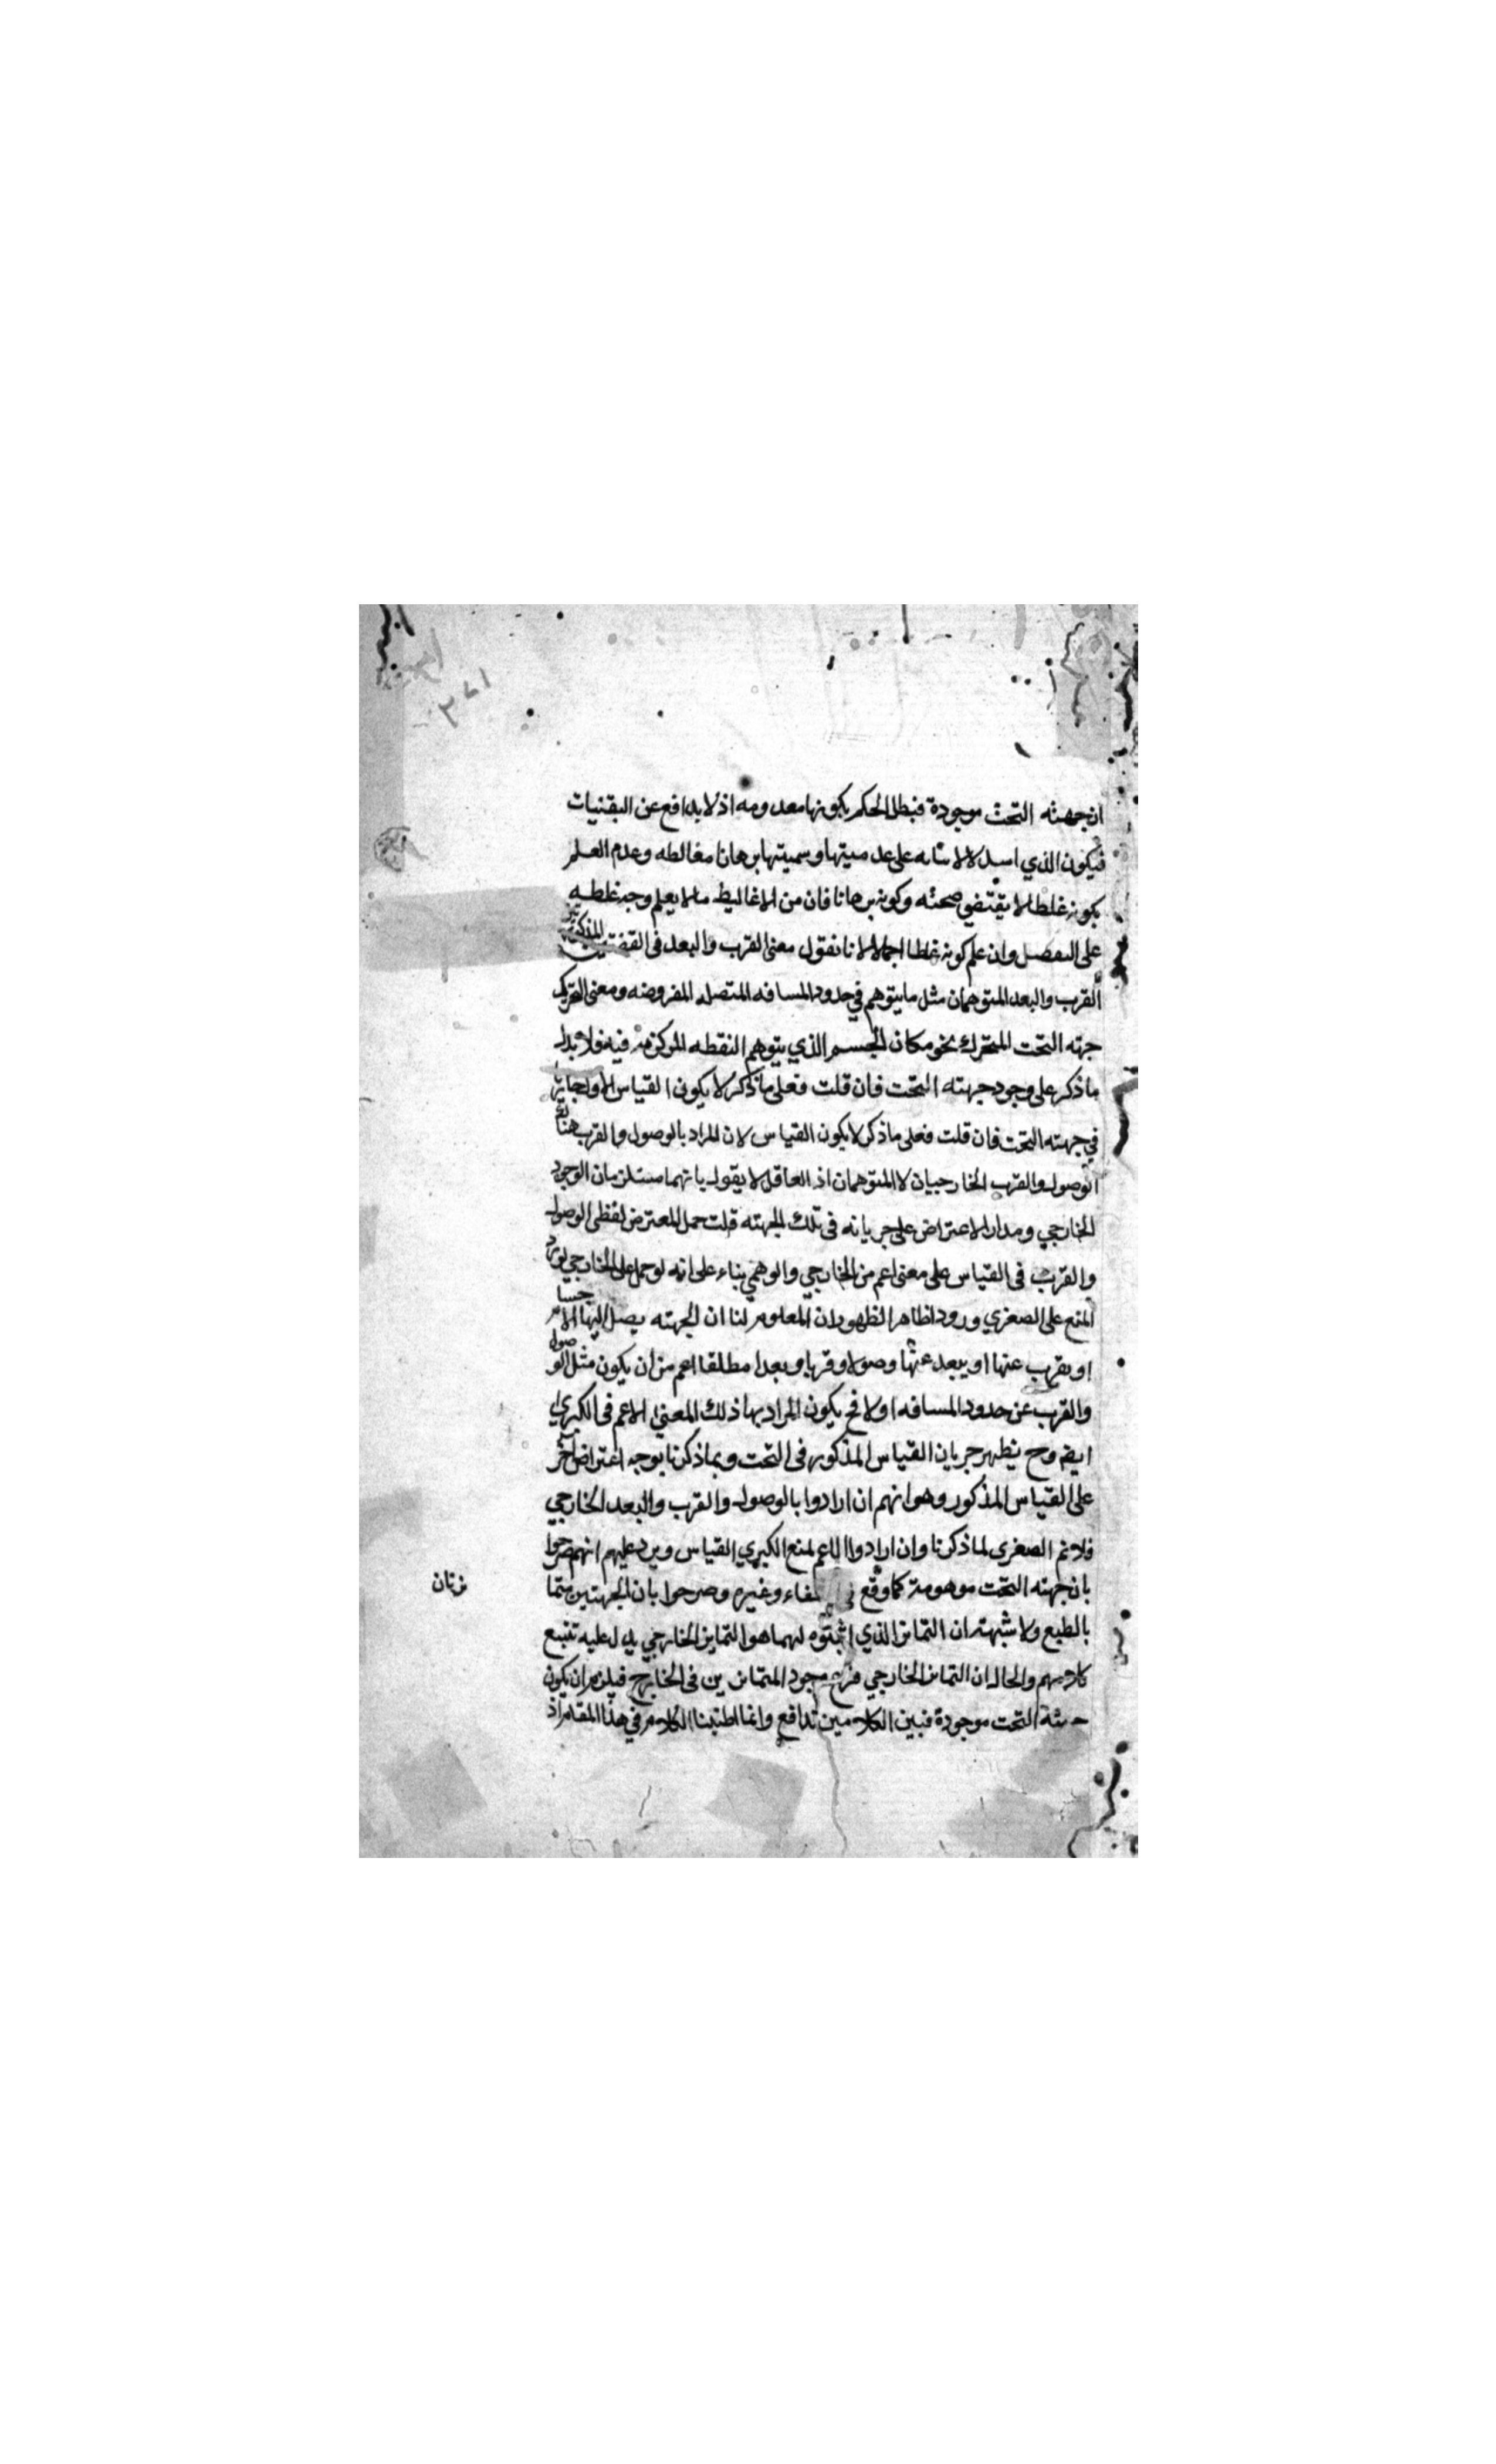 ١٧٣
ان جهته التحت موجودة فبطل الحكم بكونها معدومه اذ لا يدافع عن اليقنيات
فيكون الذي استدلالاته على عدميتها وسميتها برهانا مغالطه وعدم العلم
بكونه غلطا لا يقتضي صحته وكونه برهانا فان من الاغاليط ما لا يعلم وجه غلطه
على التفصيل وان علم كونه غلطا اجمالا لانا نقول معنى القرب والبعد في القضيتين المذكورتين
القرب والبعد المتوهمان مثل ما يتوهم في حدود المسافه المتصله المفروضه ومعنى التحرك
جهته التحت المتحرك نحو مكان الجسم الذي يتوهم النقطه المركزيه فيه فلا يدل
ما ذكر على وجود جهته التحت فان قلت فعلى ما ذكر لا يكون القياس الاول جاريا
في جهته التحت فان قلت فعلى ما ذكر لا يكون القياس لان المراد بالوصول والقرب هنا
الوصول والقرب الخارجيان لا المتوهمان اذ العاقل لا يقول بانهما مستلزمان الوجود
الخارجي ومدار الاعتراض على جريانه في تلك الجهته قلت حمل المعترض لفظي الوصول
والقرب في القياس على معنى اعم من الخارجي والوهمي بناء على انه لو حمل على الخارجي لورد
المنع على الصغري ورودا ظاهرا لظهور ان المعلوم لنا ان الجهته يصل اليها الاجسام
او يقرب عنها او يبعد عنها وصولا وقربا وبعدا مطلقا اعم من ان يكون مثل الوصول
والقرب عن حدود المسافه اولا فح يكون المراد بها ذلك المعنى الاعم في الكبري
ايضا وح يظهر جريان القياس المذكور في التحت وبما ذكرنا يوجه اعتراض آخر
على القياس المذكور وهو انهم ان ارادوا بالوصول والقرب والبعد الخارجي
فلانم الصغرى لما ذكرنا وان ارادوا الاعم لمنع الكبري القياس ويرد عليهم انهم صرحوا
بان جهته التحت موهومة كما وقع في الشفاء وغيره وصرحوا بان الجهتين متما
يزتان
بالطبع ولا شبهته ان التمايز الذي اثبتوه لهما هو التمايز الخارجي يدل عليه تتبع
كلامهم والحال ان التمايز الخارجي فرع وجود المتمايزين في الخارج فيلزم ان يكون
جهته التحت موجودة فبين الكلامين تدافع وانما اطنبنا الكلام في هذا المقام اذ